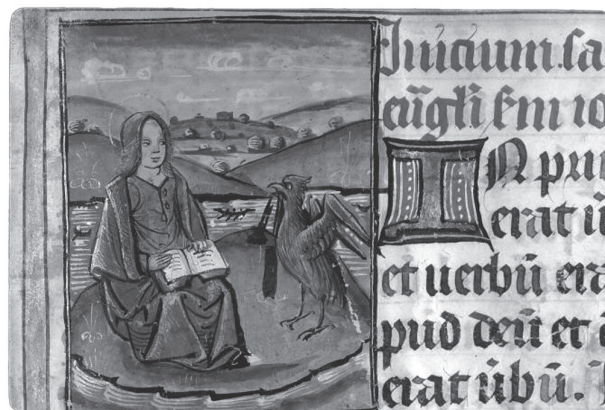 Inicium sa
eūgłi ẜm io
IN prin
erat ū
et uerbū era
pud deū et d
erat ūbū.